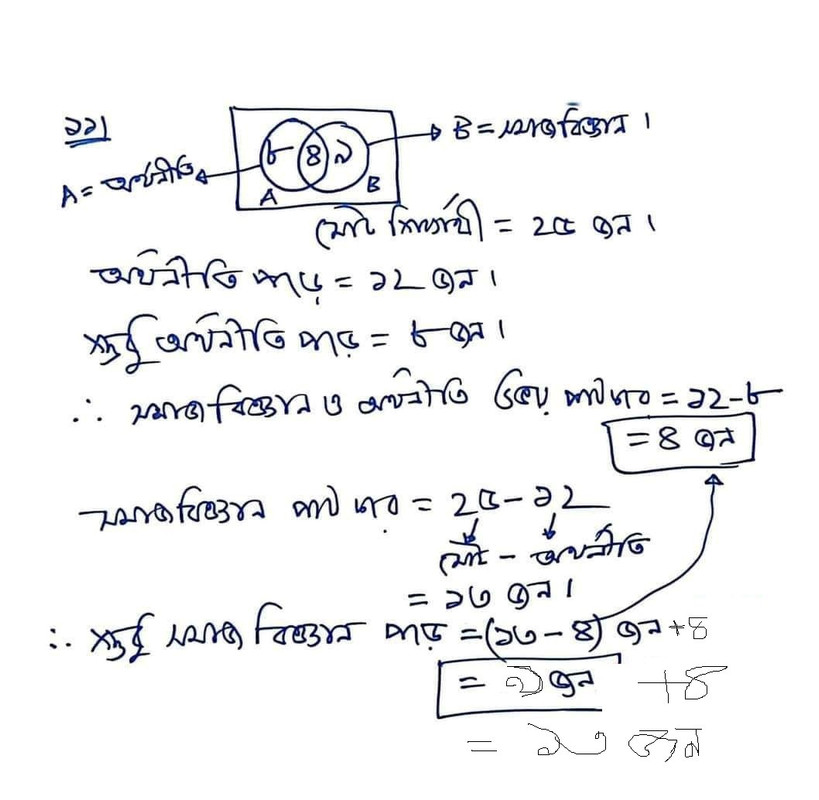 ১১|
A = অর্থনীতি
৮ ৪ ৯
A B
B = সমাজবিজ্ঞান ।
মোট শিক্ষার্থী = ২৫ জন ।
অর্থনীতি পড়ে = ১২ জন ।
শুধু অর্থনীতি পড়ে = ৮ জন ।
∴ সমাজবিজ্ঞান ও অর্থনীতি উভয় পাঠ্যের = ১২-৮
= ৪ জন
সমাজবিজ্ঞান পাঠ্যের = ২৫ - ১২
মোট - অর্থনীতি
= ১৩ জন ।
∴ শুধু সমাজ বিজ্ঞান পড়ে = (১৩ - ৪) জন +৪
= ৯ জন +৪
= ১৩ জন